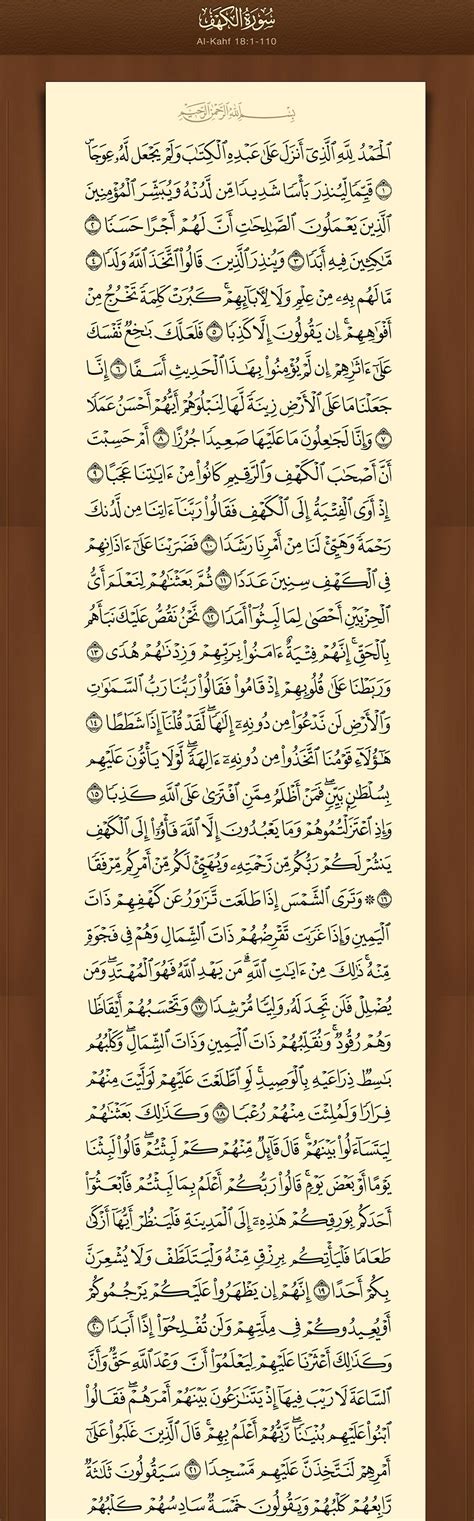 سُورَةُ الكَهْفِ
Al-Kahf 18:1-110
بِسْمِ اللَّهِ الرَّحْمَٰنِ الرَّحِيمِ
ٱلْحَمْدُ لِلَّهِ ٱلَّذِىٓ أَنزَلَ عَلَىٰ عَبْدِهِ ٱلْكِتَٰبَ وَلَمْ يَجْعَل لَّهُۥ عِوَجَاۜ
١ قَيِّمًا لِّيُنذِرَ بَأْسًا شَدِيدًا مِّن لَّدُنْهُ وَيُبَشِّرَ ٱلْمُؤْمِنِينَ
ٱلَّذِينَ يَعْمَلُونَ ٱلصَّٰلِحَٰتِ أَنَّ لَهُمْ أَجْرًا حَسَنًا ٢
مَّٰكِثِينَ فِيهِ أَبَدًا ٣ وَيُنذِرَ ٱلَّذِينَ قَالُوا۟ ٱتَّخَذَ ٱللَّهُ وَلَدًا ٤
مَّا لَهُم بِهِۦ مِنْ عِلْمٍ وَلَا لِءَابَآئِهِمْ ۚ كَبُرَتْ كَلِمَةً تَخْرُجُ مِنْ
أَفْوَٰهِهِمْ ۚ إِن يَقُولُونَ إِلَّا كَذِبًا ٥ فَلَعَلَّكَ بَٰخِعٌ نَّفْسَكَ
عَلَىٰٓ ءَاثَٰرِهِمْ إِن لَّمْ يُؤْمِنُوا۟ بِهَٰذَا ٱلْحَدِيثِ أَسَفًا ٦ إِنَّا
جَعَلْنَا مَا عَلَى ٱلْأَرْضِ زِينَةً لَّهَا لِنَبْلُوَهُمْ أَيُّهُمْ أَحْسَنُ عَمَلًا
٧ وَإِنَّا لَجَٰعِلُونَ مَا عَلَيْهَا صَعِيدًا جُرُزًا ٨ أَمْ حَسِبْتَ
أَنَّ أَصْحَٰبَ ٱلْكَهْفِ وَٱلرَّقِيمِ كَانُوا۟ مِنْ ءَايَٰتِنَا عَجَبًا ٩
إِذْ أَوَى ٱلْفِتْيَةُ إِلَى ٱلْكَهْفِ فَقَالُوا۟ رَبَّنَآ ءَاتِنَا مِن لَّدُنكَ
رَحْمَةً وَهَيِّئْ لَنَا مِنْ أَمْرِنَا رَشَدًا ١٠ فَضَرَبْنَا عَلَىٰٓ ءَاذَانِهِمْ
فِى ٱلْكَهْفِ سِنِينَ عَدَدًا ١١ ثُمَّ بَعَثْنَٰهُمْ لِنَعْلَمَ أَىُّ
ٱلْحِزْبَيْنِ أَحْصَىٰ لِمَا لَبِثُوٓا۟ أَمَدًا ١٢ نَّحْنُ نَقُصُّ عَلَيْكَ نَبَأَهُم
بِٱلْحَقِّ ۚ إِنَّهُمْ فِتْيَةٌ ءَامَنُوا۟ بِرَبِّهِمْ وَزِدْنَٰهُمْ هُدًى ١٣
وَرَبَطْنَا عَلَىٰ قُلُوبِهِمْ إِذْ قَامُوا۟ فَقَالُوا۟ رَبُّنَا رَبُّ ٱلسَّمَٰوَٰتِ
وَٱلْأَرْضِ لَن نَّدْعُوَا۟ مِن دُونِهِۦٓ إِلَٰهًا ۖ لَّقَدْ قُلْنَآ إِذًا شَطَطًا ١٤
هَٰٓؤُلَآءِ قَوْمُنَا ٱتَّخَذُوا۟ مِن دُونِهِۦٓ ءَالِهَةً ۖ لَّوْلَا يَأْتُونَ عَلَيْهِم
بِسُلْطَٰنٍۭ بَيِّنٍ ۖ فَمَنْ أَظْلَمُ مِمَّنِ ٱفْتَرَىٰ عَلَى ٱللَّهِ كَذِبًا ١٥
وَإِذِ ٱعْتَزَلْتُمُوهُمْ وَمَا يَعْبُدُونَ إِلَّا ٱللَّهَ فَأْوُۥٓا۟ إِلَى ٱلْكَهْفِ
يَنشُرْ لَكُمْ رَبُّكُم مِّن رَّحْمَتِهِۦ وَيُهَيِّئْ لَكُم مِّنْ أَمْرِكُم مِّرْفَقًا
١٦ ۞ وَتَرَى ٱلشَّمْسَ إِذَا طَلَعَت تَّزَٰوَرُ عَن كَهْفِهِمْ ذَاتَ
ٱلْيَمِينِ وَإِذَا غَرَبَت تَّقْرِضُهُمْ ذَاتَ ٱلشِّمَالِ وَهُمْ فِى فَجْوَةٍ
مِّنْهُ ۚ ذَٰلِكَ مِنْ ءَايَٰتِ ٱللَّهِ ۗ مَن يَهْدِ ٱللَّهُ فَهُوَ ٱلْمُهْتَدِ ۖ وَمَن
يُضْلِلْ فَلَن تَجِدَ لَهُۥ وَلِيًّا مُّرْشِدًا ١٧ وَتَحْسَبُهُمْ أَيْقَاظًا
وَهُمْ رُقُودٌ ۚ وَنُقَلِّبُهُمْ ذَاتَ ٱلْيَمِينِ وَذَاتَ ٱلشِّمَالِ ۖ وَكَلْبُهُم
بَٰسِطٌ ذِرَاعَيْهِ بِٱلْوَصِيدِ ۚ لَوِ ٱطَّلَعْتَ عَلَيْهِمْ لَوَلَّيْتَ مِنْهُمْ
فِرَارًا وَلَمُلِئْتَ مِنْهُمْ رُعْبًا ١٨ وَكَذَٰلِكَ بَعَثْنَٰهُمْ
لِيَتَسَآءَلُوا۟ بَيْنَهُمْ ۚ قَالَ قَآئِلٌ مِّنْهُمْ كَمْ لَبِثْتُمْ ۖ قَالُوا۟ لَبِثْنَا
يَوْمًا أَوْ بَعْضَ يَوْمٍ ۚ قَالُوا۟ رَبُّكُمْ أَعْلَمُ بِمَا لَبِثْتُمْ فَٱبْعَثُوٓا۟
أَحَدَكُم بِوَرِقِكُمْ هَٰذِهِۦٓ إِلَى ٱلْمَدِينَةِ فَلْيَنظُرْ أَيُّهَآ أَزْكَىٰ
طَعَامًا فَلْيَأْتِكُم بِرِزْقٍ مِّنْهُ وَلْيَتَلَطَّفْ وَلَا يُشْعِرَنَّ
بِكُمْ أَحَدًا ١٩ إِنَّهُمْ إِن يَظْهَرُوا۟ عَلَيْكُمْ يَرْجُمُوكُمْ
أَوْ يُعِيدُوكُمْ فِى مِلَّتِهِمْ وَلَن تُفْلِحُوٓا۟ إِذًا أَبَدًا ٢٠
وَكَذَٰلِكَ أَعْثَرْنَا عَلَيْهِمْ لِيَعْلَمُوٓا۟ أَنَّ وَعْدَ ٱللَّهِ حَقٌّ وَأَنَّ
ٱلسَّاعَةَ لَا رَيْبَ فِيهَآ إِذْ يَتَنَٰزَعُونَ بَيْنَهُمْ أَمْرَهُمْ ۖ فَقَالُوا۟
ٱبْنُوا۟ عَلَيْهِم بُنْيَٰنًا ۖ رَّبُّهُمْ أَعْلَمُ بِهِمْ ۚ قَالَ ٱلَّذِينَ غَلَبُوا۟ عَلَىٰٓ
أَمْرِهِمْ لَنَتَّخِذَنَّ عَلَيْهِم مَّسْجِدًا ٢١ سَيَقُولُونَ ثَلَٰثَةٌ
رَّابِعُهُمْ كَلْبُهُمْ وَيَقُولُونَ خَمْسَةٌ سَادِسُهُمْ كَلْبُهُمْ